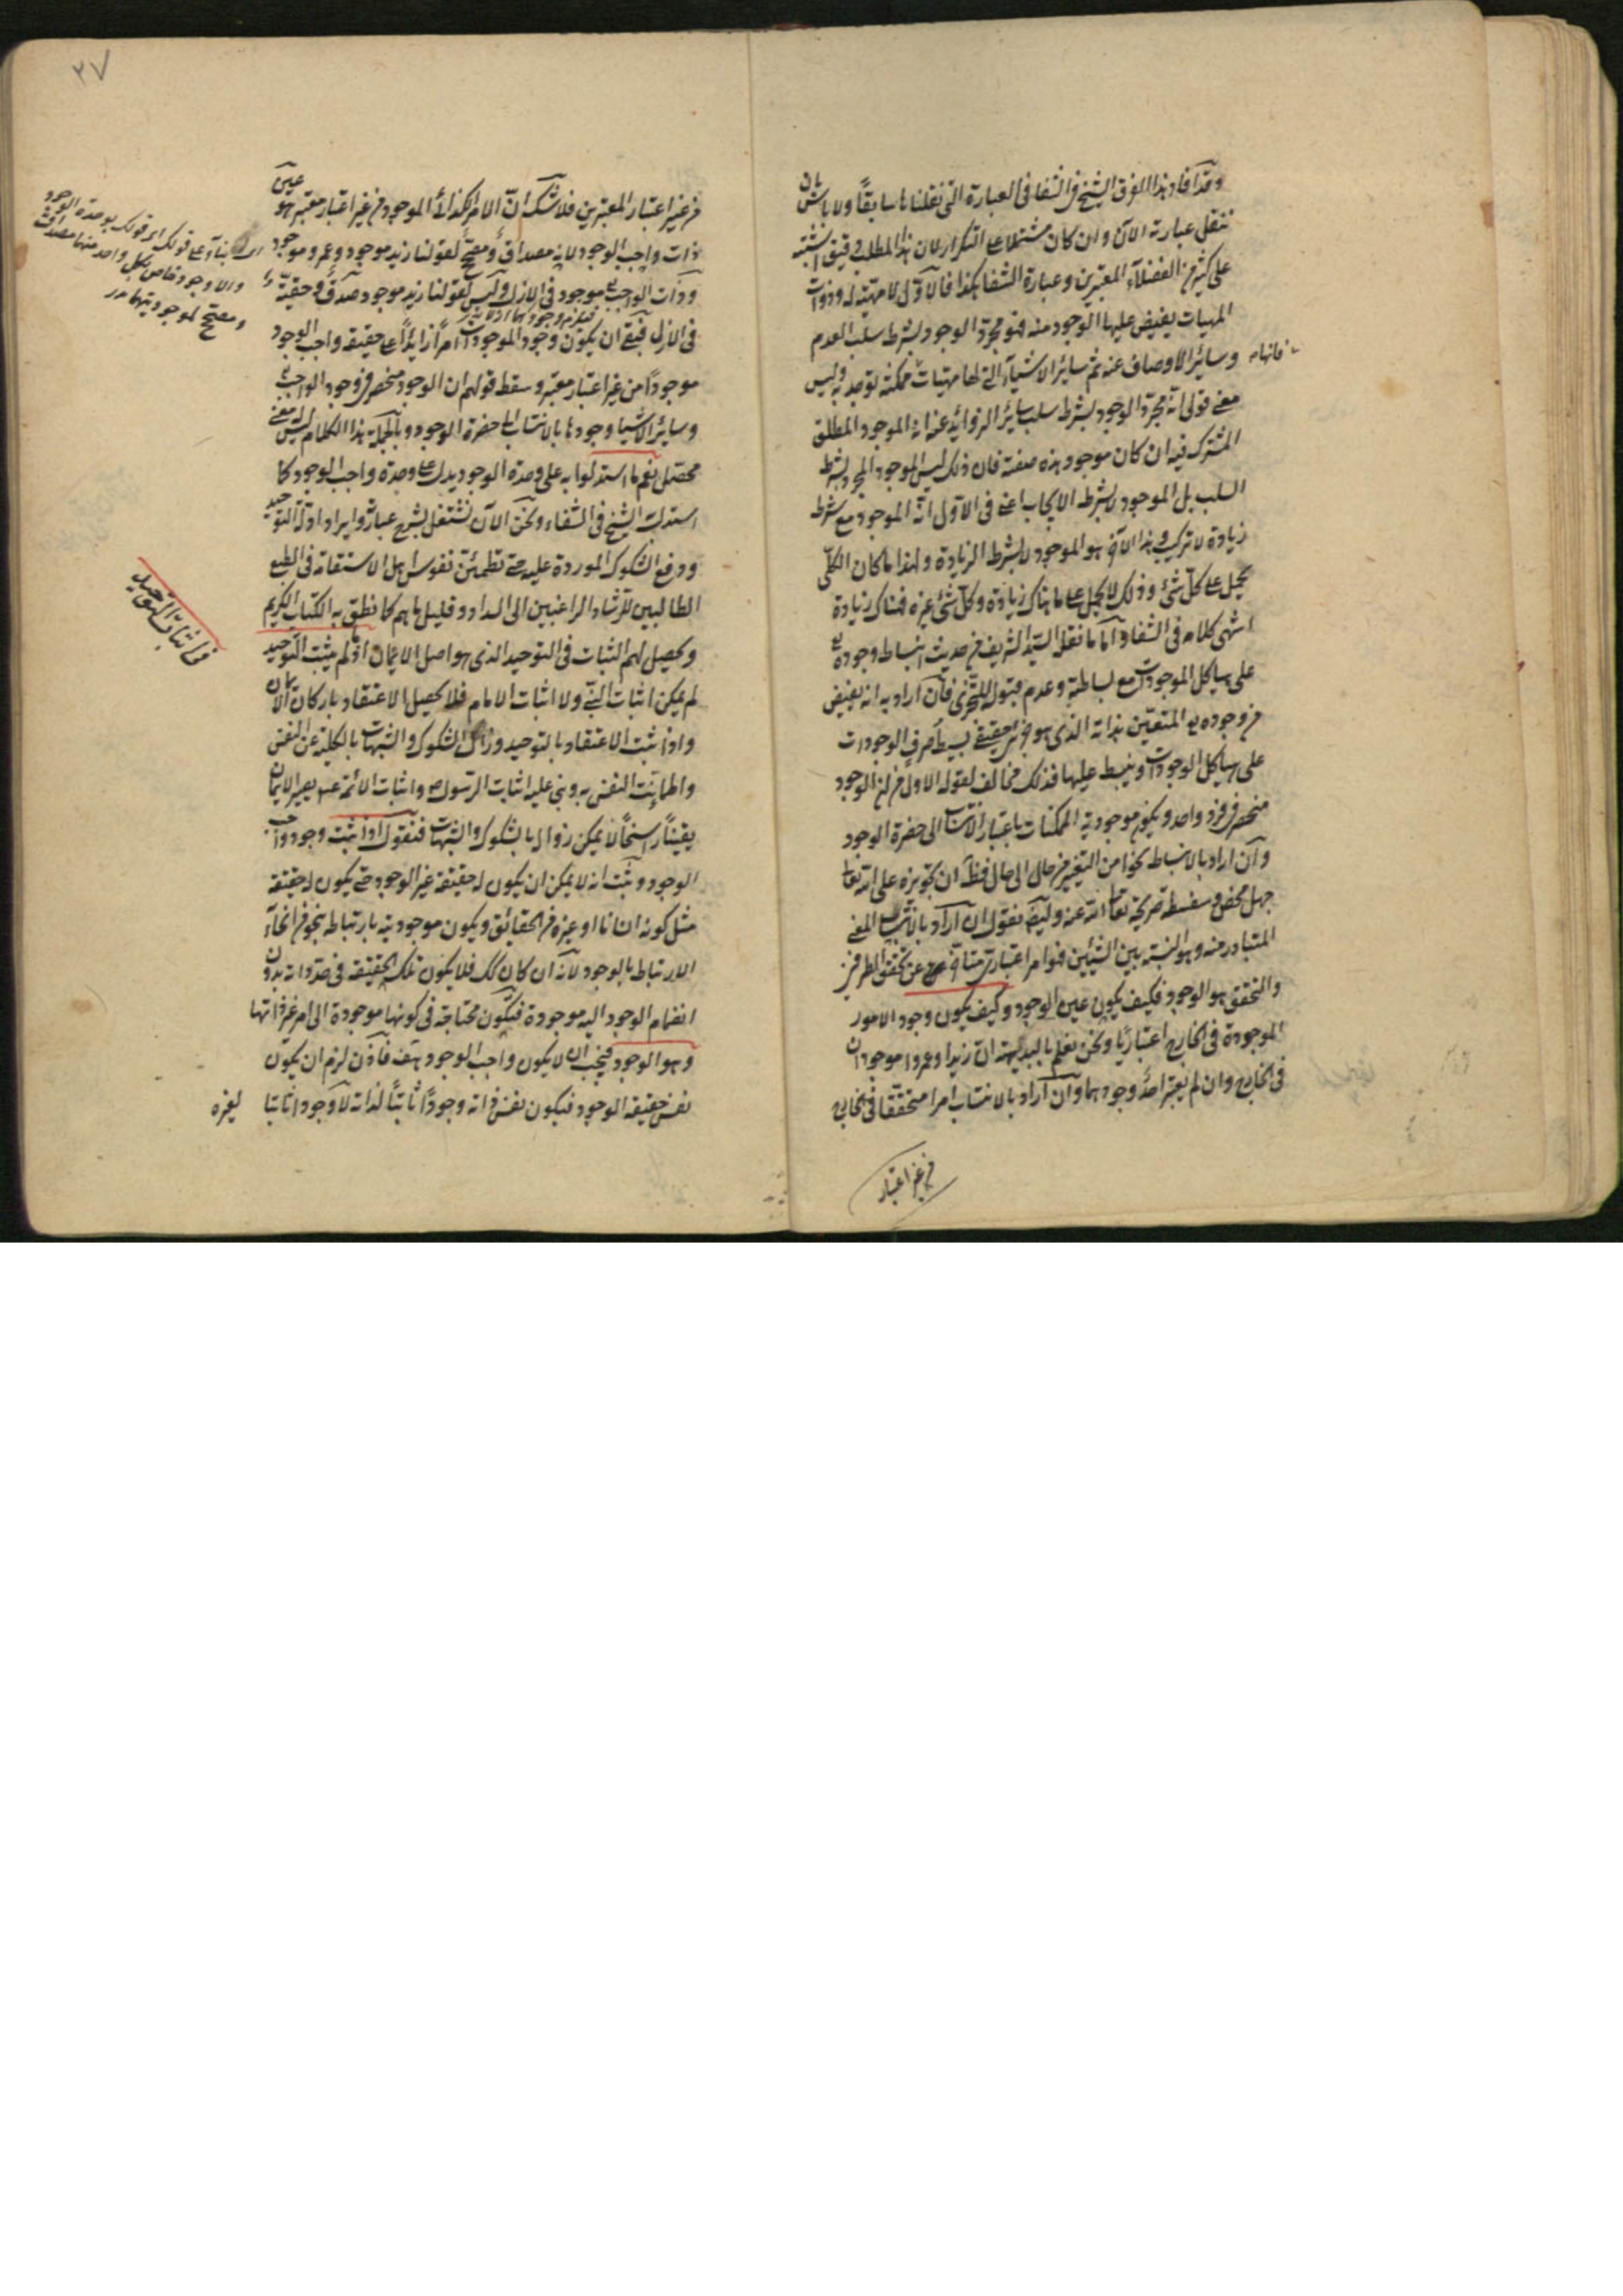 وقد افاد هذا الفرق الشيخ في الشفا في العبارة التي نقلناها سابقاً ولا باس بان
ننقل عبارته الآن وان كان مشتملا على التكرار لان هذا المطلب دقيق اشتبه
على كثير من الفضلآء المعتبرين وعبارة الشفا هكذا فالاوّل لا مهيّة له وذوات
المهيات يفيض عليها الوجود منه فهو مجرّد الوجود بشرط سلب العدم
وسائر الاوصاف عنه ثم سائر الاشيآء التي لها مهيّات فانها ممكنة توجد به وليس
معنى قولى انه مجرّد الوجود بشرط سلب سائر الزوائد عنه انه الموجود المطلق
المشترك فيه ان كان موجود هذه صفته فان ذلك ليس الموجود المجرد بشرط
السلب بل الموجود لا بشرط الايجاب اعنى في الاوّل انّه الموجود مع شرط
زيادة لا تركيب وهذا الآخر هو الموجود لا بشرط الزيادة ولهذا ما كان الكلّى
يحمل على كلّ شئ وذلك لا يحمل على ما هناك زيادة وكلّ شئ غيره فهناك زيادة
انتهى كلامه في الشفا وامّا ما نقله السيّد الشريف من حديث انبساط وجوده تع
على هياكل الموجودات مع بساطته وعدم قبوله للتجزّى فان اراد به انه يفيض
من وجوده المتعيّن بذاته الذى هو جزئى حقيقى بسيط صرف الوجودات
على هياكل الوجودات وينبسط عليها فذلك مخالف لقوله الاول من ان الوجود
منحصر في فرد واحد ويكون موجودية الممكنات باعتبار الانتساب الى حضرة الوجود
وان اراد بالانبساط نحوا من التغيّر من حال الى حال فظّ ان تجويزه على الله تعالى
جهل محض وسفسطة صريحة تعالى الله عنه وايضا نقول ان اراد بالانتساب المعنى
المتبادر منه وهو النسبة بين الشيئين فهو امر اعتبارى متأخر عن تحقق الطرفين
والتحقق هو الوجود فكيف يكون عين الوجود وكيف يكون وجود الامور
الموجودة في الخارج اعتباريّا ونحن نعلم بالبديهة ان زيدا وعمروا موجودان
في الخارج وان لم يعتبر احدٌ وجودهما وان اراد بالانتساب امرا متحققا في الخارج
من غير اعتبار
٢٧
من غير اعتبار المعتبرين فلا شك انّ الامر الكذائى الموجود من غير اعتبار معتبر هو عين
ذات واجب الوجود لانه مصداق ومصحّح لقولنا زيد موجود وعمرو موجود
وذات الواجب تع موجود في الازل وليس لقولنا زيد موجود صدق وحقيّة
في الازل فبقى ان يكون وجود الموجودات امراً زايداً على حقيقة واجب الوجود
موجوداً من غير اعتبار معتبر وسقط قولهم ان الوجود منحصر في وجود الواجب تع
وسائر الاشيا وجودها بالانتساب الى حضرة الوجود وبالجملة هذا الكلام ليس له معنى
محصّل نعم ما استدلوا به على وحدة الوجود يدل على وحدة واجب الوجود كما
استدل الشيخ في الشفاء ونحن الآن نشتغل بشرح عبارته وايراد ادلّة التوحيد
ودفع الشكوك الموردة عليه حتى تطمئنّ نفوس اهل الاستقامة في الطبع
الطالبين للرشاد الراغبين الى السداد وقليل ما هم كما نطق به الكتاب الكريم
ويحصل لهم الثبات في التوحيد الذى هو اصل الايمان اذ لو لم يثبت التوحيد
لم يمكن اثبات النبى ولا اثبات الامام فلا يحصل الاعتقاد باركان الايمان
واذا ثبت الاعتقاد بالتوحيد وزال الشكوك والشبهات بالكلية عن النفس
واطمانت النفس به وبنى عليه اثبات الرسول ص واثبات الائمة ع يصير الايمان
يقيناً راسخاً لا يمكن زواله بالشكوك والشبهات فنقول اذا ثبت وجود واجب
الوجود وثبت انه لا يمكن ان يكون له حقيقة غير الوجود حتى يكون له حقيقة
مثل كونه انسانا او غيره من الحقائق ويكون موجوديته بارتباطه بنحو من انحآء
الارتباط بالوجود لانه ان كان كك فلا يكون تلك الحقيقة في حدّ ذاته بدون
انضمام الوجود اليه موجودة فتكون محتاجة في كونها موجودة الى امر غير ذاتها
وهو الوجود فيجب ان لا يكون واجب الوجود هف فاذن لزم ان يكون
نفس حقيقة الوجود فيكون نفس ذاته وجوداً ثابتاً لذاته لا وجودا ثابتا لغيره
بناء على قولك
والا وجود خاص لكل واحد منها مصداق
ومصحّح لموجوديتهما
في اثبات التوحيد